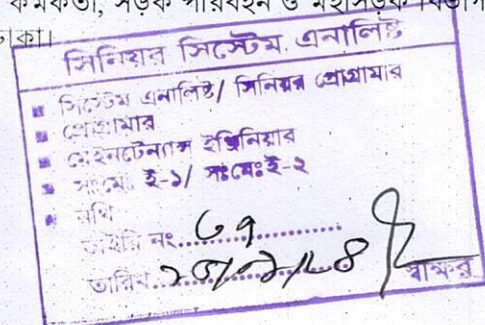 কর্মকর্তা, সড়ক পরিবহন ও মহাসড়ক বিভাগ
ঢাকা।
সিনিয়র সিস্টেম এনালিষ্ট
সিস্টেম এনালিষ্ট/ সিনিয়র প্রোগ্রামার
প্রোগ্রামার
মেইনটেন্যান্স ইঞ্জিনিয়ার
সঃমেঃ ই-১/ সঃমেঃই-২
নথি
ডাইরি নং
তারিখ
স্বাক্ষর